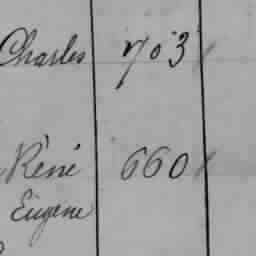 Charles 703
René 660
Eugene